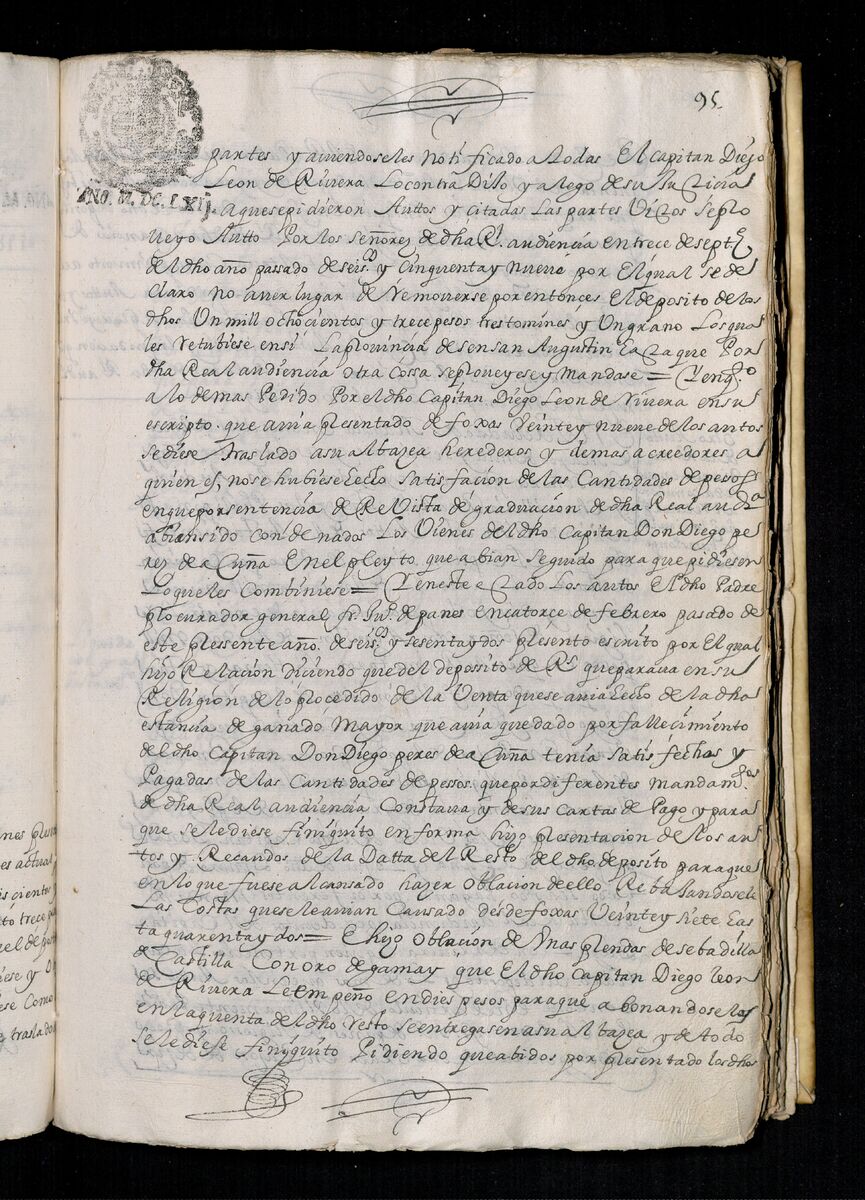 95
partes y aviendoseles notificado a todas El capitan Diego
Leon de Rivera Lo contra Dijo y alego de su Justicia
ANO. M. DC. LXIJ.
a que se pidieron Auttos y citadas Las partes Vistos se plo
ueyo Autto Por los señores de dha Rl. audiencia en trece de septe.
del dho año passado de seisos. y cinquenta y nueve por El qual se de
claro no aver lugar de Removerse por entonçes El deposito de los
dhos Un mill ochocientos y trece pesos tres tomines y Un grano Los qua
les retubiese en si La plovincia de sensan Augustin Hasta que Por
dha Real audiencia otra cossa se ploveyese y Mandase = Y en qto.
a lo demas Pedido Por el dho Capitan Diego Leon de Rivera en su
escripto que avia plesentado de foxas Veinte y nueve de los autos
se diese traslado a su albazea herederos y demas acreedores a
quienes, no se hubiese hecho satisfacion de las Cantidades de pesos
en que por sentencia de ReVista de graduacion de dha Real audia.
abian sido condenados Los Vienes del dho Capitan Don Diego pe
rez de a Cuña En el pleyto que abian seguido para que pidiesen
Lo que les Combiniese = Y en este estado Los autos El dho Padre
plocurador general fr. Juo. de panes en catorce de febrero pasado de
este plessente año de seisos. y sesenta y dos plesento escrito por El qual
hijo Relacion diciendo que del deposito de Rs. que parava en su
Religion de lo plocedido de la Venta que se avia hecho de la dha
estancia de ganado Mayor que avia quedado por fallecimiento
del dho Capitan Don Diego peres de a Cuña tenia satisfechas y
Pagadas de las Cantidades de pessos que por diferentes mandamtos.
de dha Real audiencia Constava y de sus Cartas de Pago y para
que se le diese finiquito en forma hijo plesentacion de los au
tos y Recaudos de la Datta del Resto del dho deposito para que
en lo que fuese alcansado hazer oblacion de ello Rebajandosele
Las Costas que se le avian Causado desde foxas Veinte y siete has
ta quarenta y dos = E hijo Oblacion de Unas plendas de sebadilla
de Castilla Con oro de gamay que El dho Capitan Diego leon
de Rivera Le empeño en dies pesos para que abonandoselos
en la quenta del dho resto se entregasen a su albazea y de todo
se le diese finiquito Pidiendo que abidos por plesentado los dhos